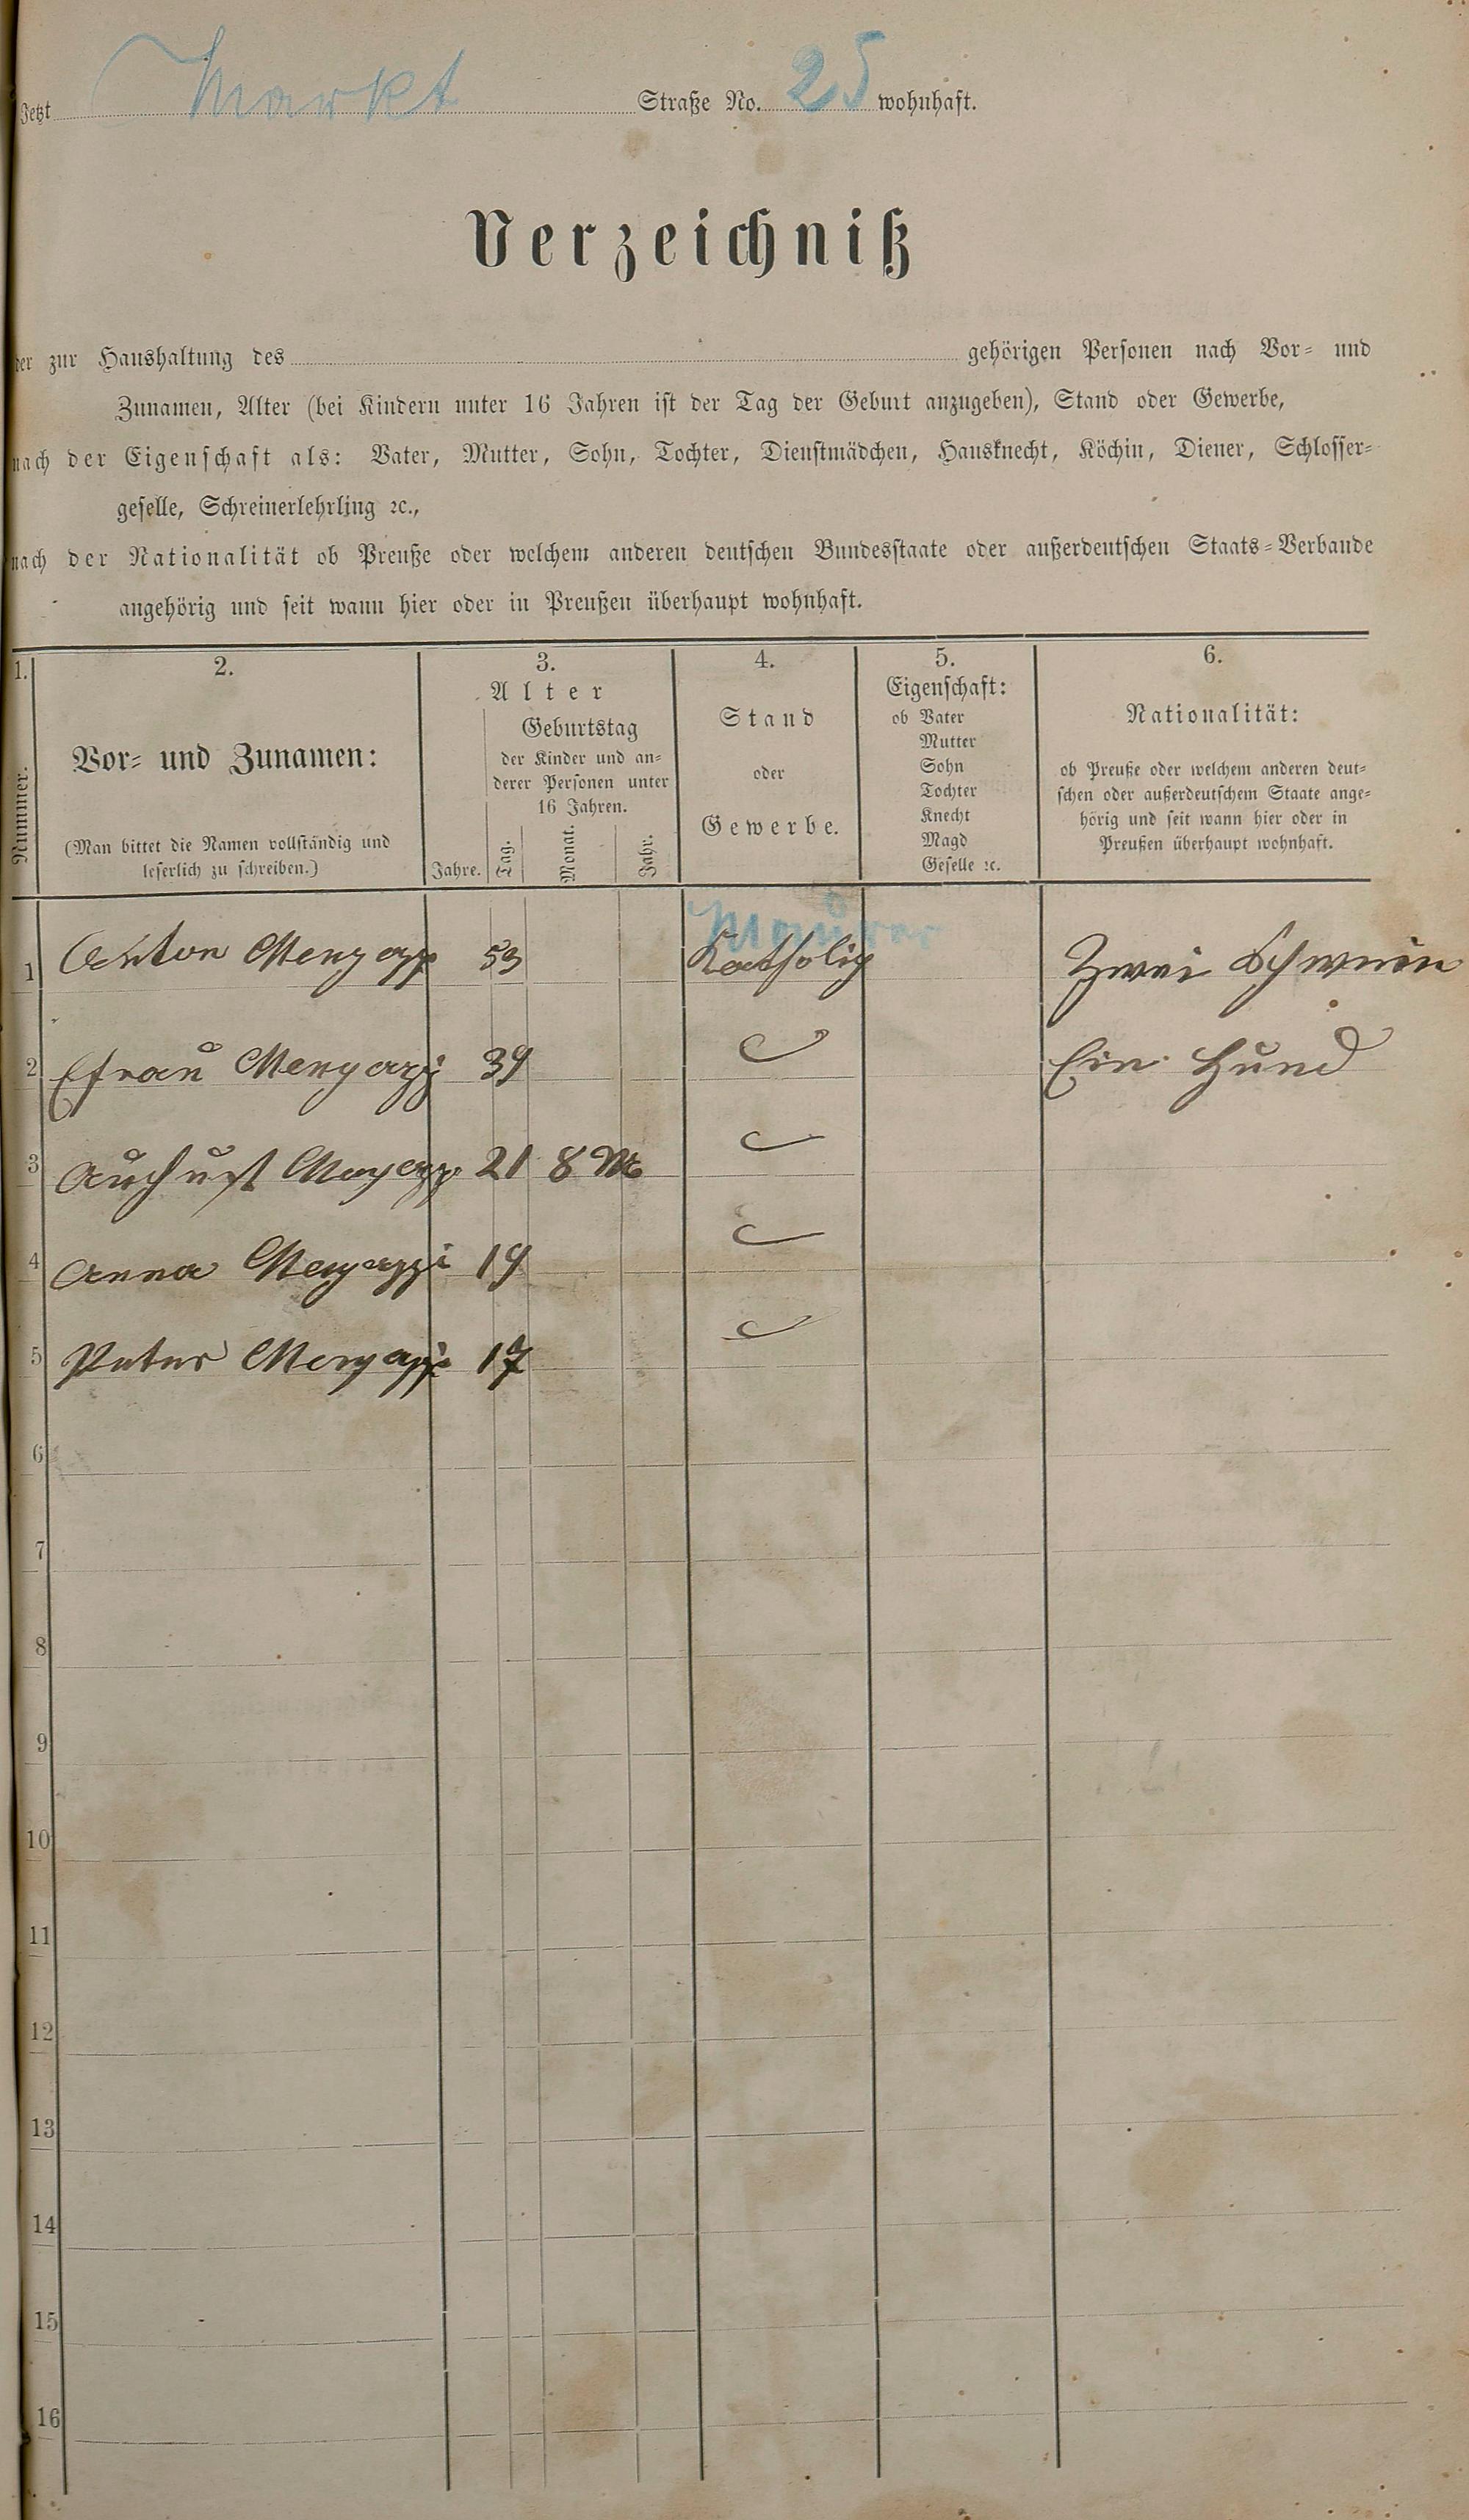 Jetzt Markt Straße No. 25 wohnhaft.
Verzeichniß
der zur Haushaltung des gehörigen Personen nach Vor- und
Zunamen, Alter (bei Kindern unter 16 Jahren ist der Tag der Geburt anzugeben), Stand oder Gewerbe,
nach der Eigenschaft als: Vater, Mutter, Sohn, Tochter, Dienstmädchen, Hausknecht, Köchin, Diener, Schlosser-
geselle, Schreinerlehrling ꝛc.,
nach der Nationalität ob Preuße oder welchem anderen deutschen Bundesstaate oder außerdeutschen Staats-Verbande
angehörig und seit wann hier oder in Preußen überhaupt wohnhaft.
1.
Nummer.
2.
Vor- und Zunamen:
(Man bittet die Namen vollständig und
leserlich zu schreiben.)
3.
Alter
Geburtstag
der Kinder und an-
derer Personen unter
16 Jahren.
Jahre. Tag. Monat. Jahr.
4.
Stand
oder
Gewerbe.
5.
Eigenschaft:
ob Vater
Mutter
Sohn
Tochter
Knecht
Magd
Geselle ꝛc.
6.
Nationalität:
ob Preuße oder welchem anderen deut-
schen oder außerdeutschem Staate ange-
hörig und seit wann hier oder in
Preußen überhaupt wohnhaft.
Maurer
1 Anton 53 Katholig Zwei Schwein
2 Efrau 39 Ein Hund
3 Auchust 21 8 M
4 Anna 19
5 Peter 17
6
7
8
9
10
11
12
13
14
15
16